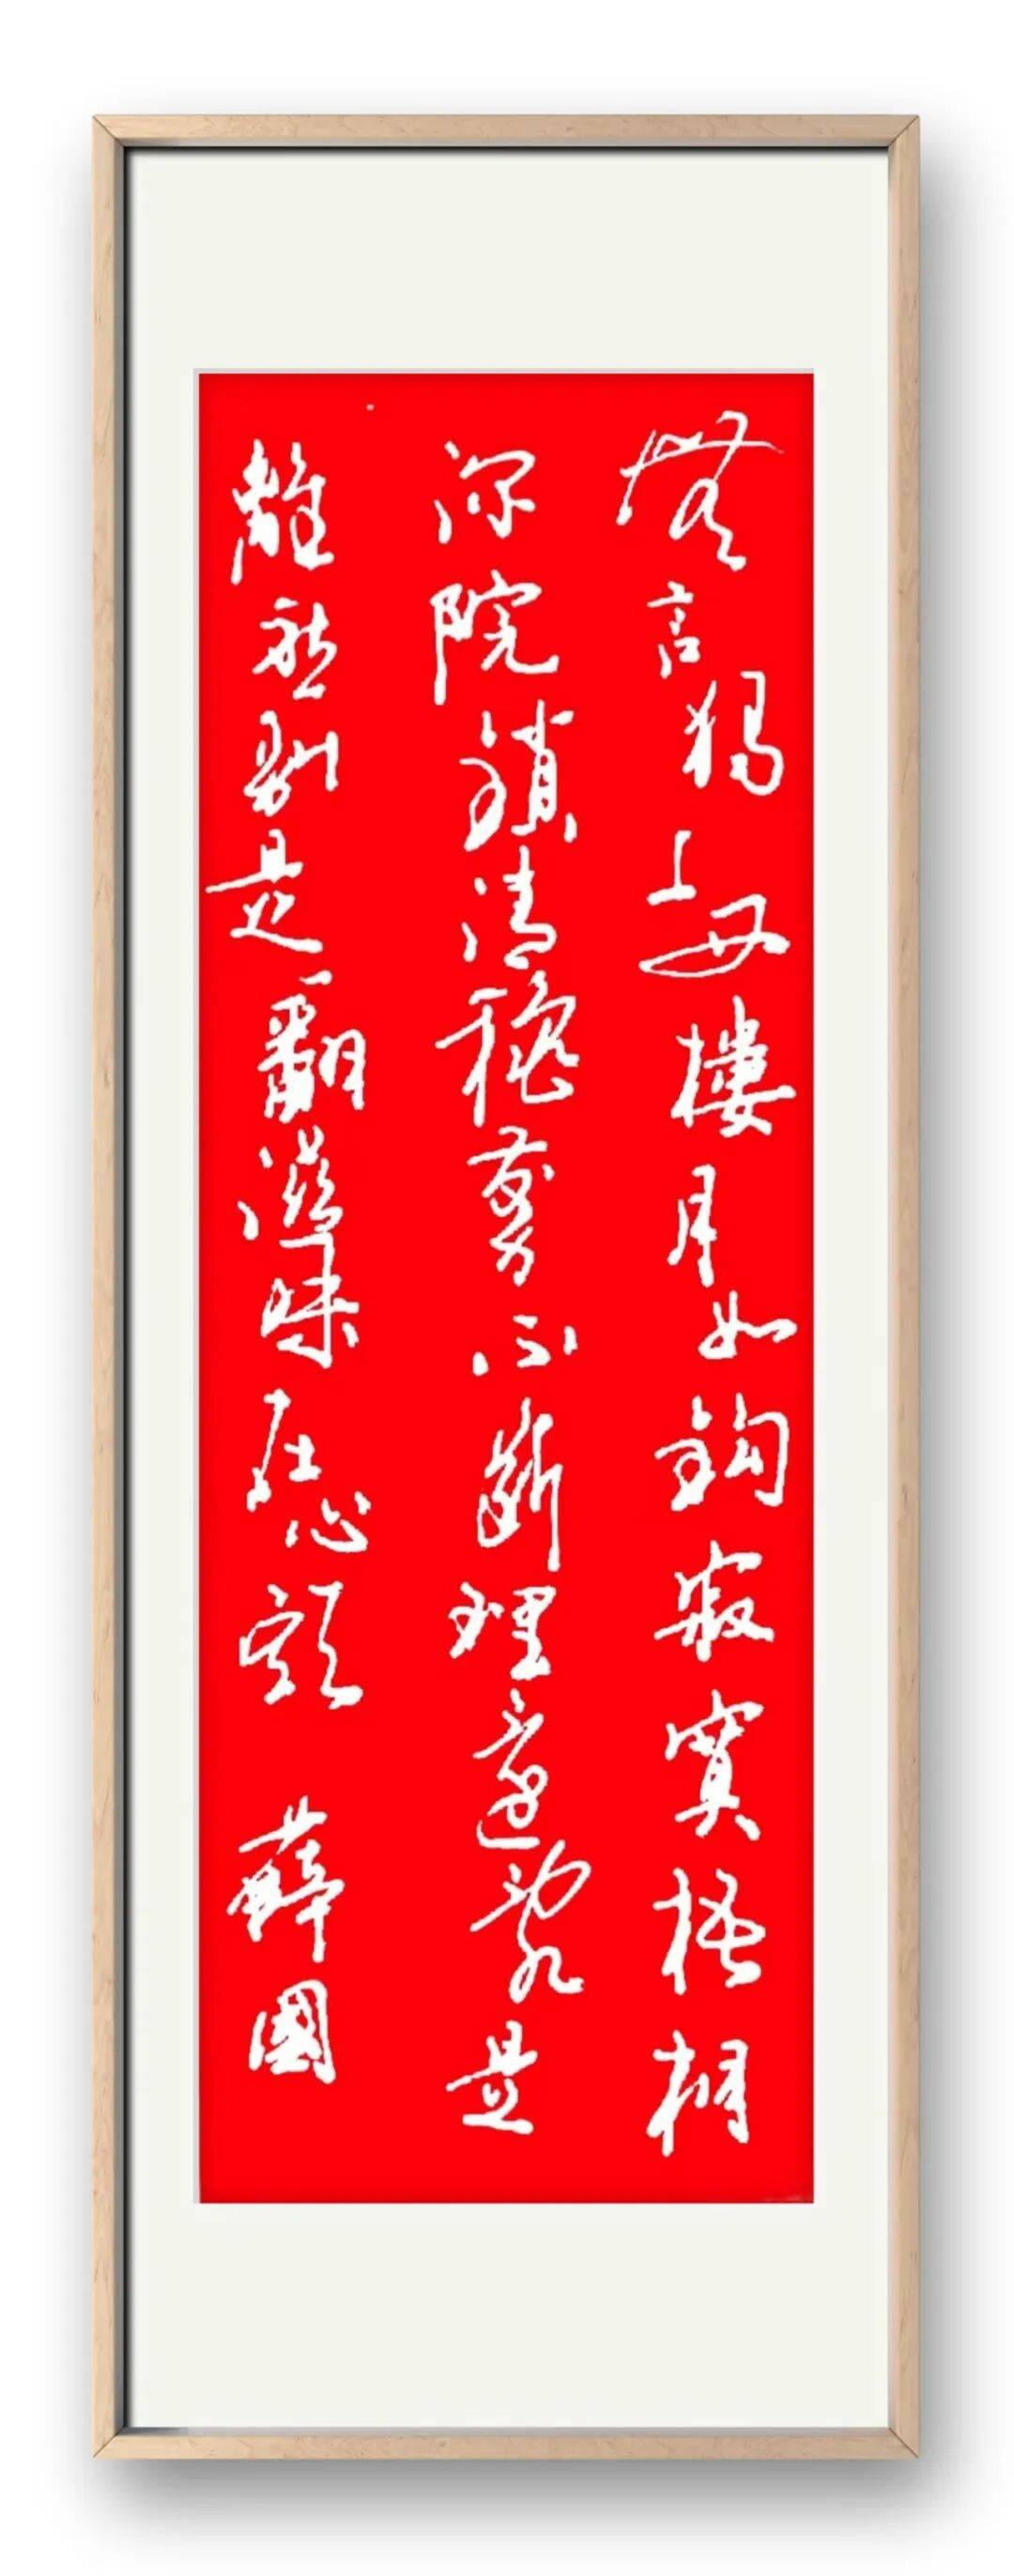 無言獨上西樓月如鈎寂寞梧桐
深院鎖清穐剪不斷理還亂是
離愁別是一翻滋味在心頭 薛國